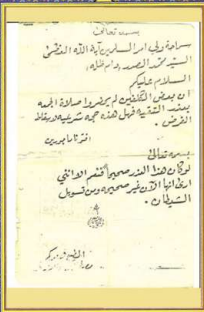 بسمه تعالى
سماحة ولي امر المسلمين آية الله العظمى
السيد محمد الصدر دام ظله
السلام عليكم
ان بعض المكلفين لم يحضروا صلاة الجمعة
بعذر التقية فهل هذه حجة شرعية لاسقاط
الفرض .
افتونا مأجورين
بسمه تعالى
لو كان هذا العذر صحيحاً
الآن غير صحيح ومن تسويل
الشيطان .